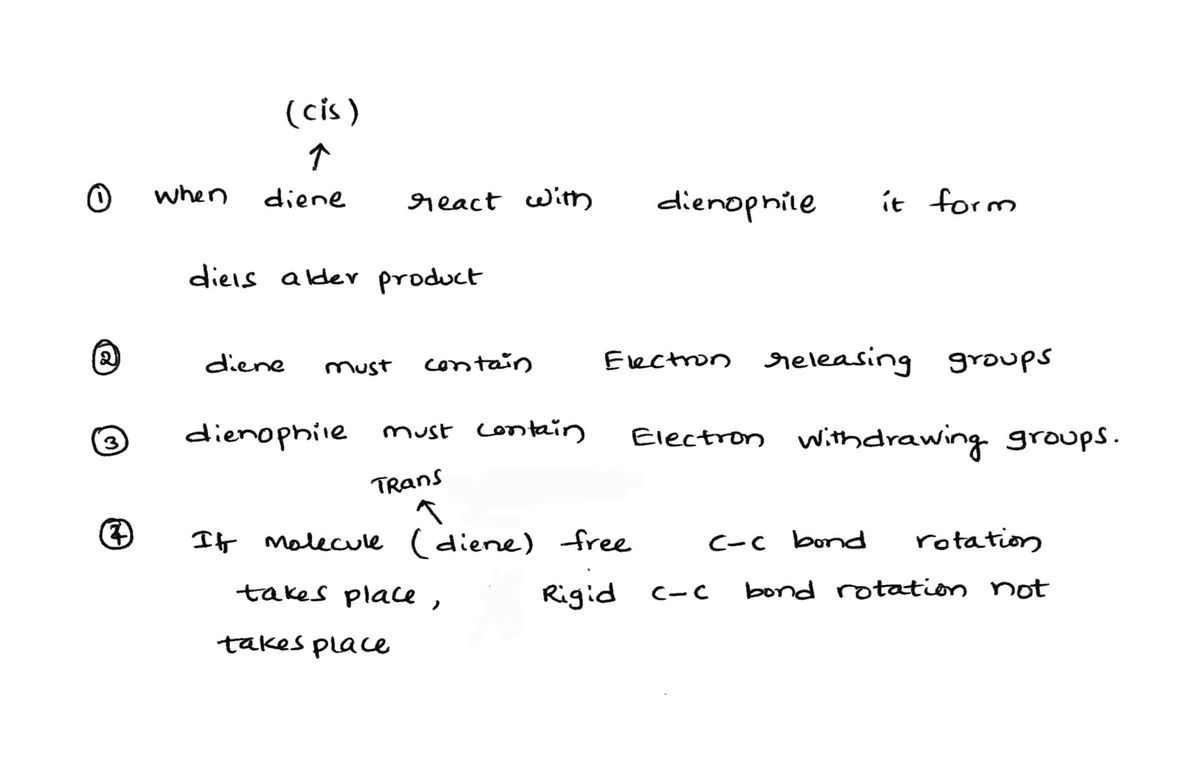 (cis)
↑
① when diene react with dienophile it form
diels alder product
② diene must contain Electron releasing groups
③ dienophile must contain Electron withdrawing groups.
TRans
↑
④ If molecule (diene) free C-C bond rotation
takes place, Rigid C-C bond rotation not
takes place